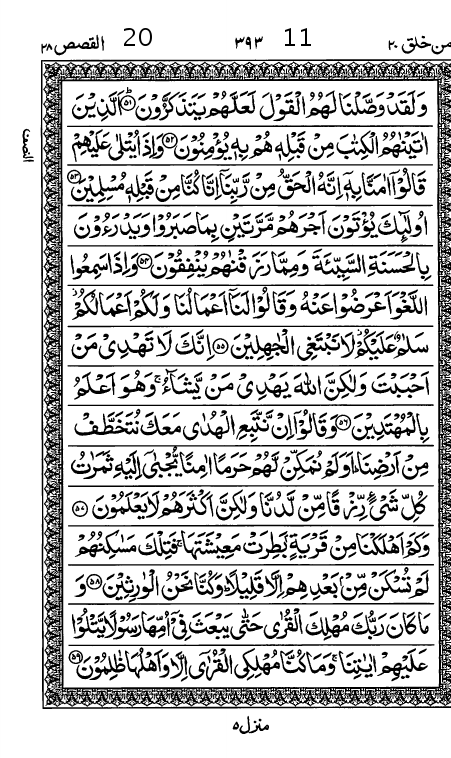 القصص ٢٨ 20 ٣٩٣ 11 من خلق ٢٠
وَلَقَدْ وَصَّلْنَا لَهُمُ الْقَوْلَ لَعَلَّهُمْ يَتَذَكَّرُوْنَ ﴿٥١﴾ اَلَّذِيْنَ
اٰتَيْنٰهُمُ الْكِتٰبَ مِنْ قَبْلِهٖ هُمْ بِهٖ يُؤْمِنُوْنَ ﴿٥٢﴾ وَاِذَا يُتْلٰى عَلَيْهِمْ
قَالُوْۤا اٰمَنَّا بِهٖۤ اِنَّهُ الْحَقُّ مِنْ رَّبِّنَاۤ اِنَّا كُنَّا مِنْ قَبْلِهٖ مُسْلِمِيْنَ ﴿٥٣﴾
اُولٰٓئِكَ يُؤْتَوْنَ اَجْرَهُمْ مَّرَّتَيْنِ بِمَا صَبَرُوْا وَيَدْرَءُوْنَ
بِالْحَسَنَةِ السَّيِّئَةَ وَمِمَّا رَزَقْنٰهُمْ يُنْفِقُوْنَ ﴿٥٤﴾ وَاِذَا سَمِعُوا
اللَّغْوَ اَعْرَضُوْا عَنْهُ وَقَالُوْا لَنَاۤ اَعْمَالُنَا وَلَكُمْ اَعْمَالُكُمْ
سَلٰمٌ عَلَيْكُمْ لَا نَبْتَغِى الْجٰهِلِيْنَ ﴿٥٥﴾ اِنَّكَ لَا تَهْدِىْ مَنْ
اَحْبَبْتَ وَلٰكِنَّ اللّٰهَ يَهْدِىْ مَنْ يَّشَآءُ ۚ وَهُوَ اَعْلَمُ
بِالْمُهْتَدِيْنَ ﴿٥٦﴾ وَقَالُوْۤا اِنْ نَّتَّبِعِ الْهُدٰى مَعَكَ نُتَخَطَّفْ
مِنْ اَرْضِنَا ؕ اَوَلَمْ نُمَكِّنْ لَّهُمْ حَرَمًا اٰمِنًا يُّجْبٰٓى اِلَيْهِ ثَمَرٰتُ
كُلِّ شَىْءٍ رِّزْقًا مِّنْ لَّدُنَّا وَلٰكِنَّ اَكْثَرَهُمْ لَا يَعْلَمُوْنَ ﴿٥٧﴾
وَكَمْ اَهْلَكْنَا مِنْ قَرْيَةٍۭ بَطِرَتْ مَعِيْشَتَهَا ۚ فَتِلْكَ مَسٰكِنُهُمْ
لَمْ تُسْكَنْ مِّنْۢ بَعْدِهِمْ اِلَّا قَلِيْلًا ؕ وَكُنَّا نَحْنُ الْوٰرِثِيْنَ ﴿٥٨﴾ وَ
مَا كَانَ رَبُّكَ مُهْلِكَ الْقُرٰى حَتّٰى يَبْعَثَ فِىْۤ اُمِّهَا رَسُوْلًا يَّتْلُوْا
عَلَيْهِمْ اٰيٰتِنَا ۚ وَمَا كُنَّا مُهْلِكِى الْقُرٰٓى اِلَّا وَاَهْلُهَا ظٰلِمُوْنَ ﴿٥٩﴾
منزل ٥